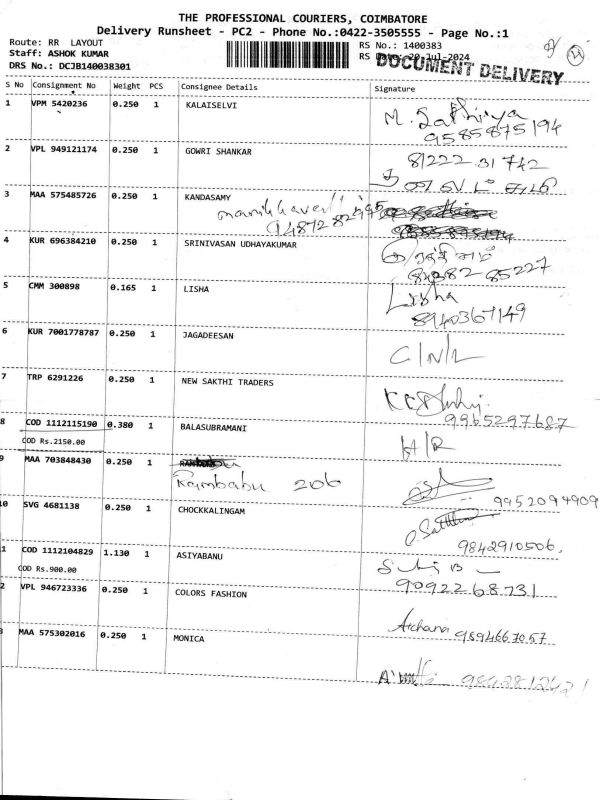 THE PROFESSIONAL COURIERS, COIMBATORE
Delivery Runsheet - PC2 - Phone No.:0422-3505555 - Page No.:1
Route: RR LAYOUT
Staff: ASHOK KUMAR
DRS No.: DCJB140038301
RS No.: 1400383
RS Jul-2024
DOCUMENT DELIVERY
S No Consignment No Weight PCS Consignee Details Signature
1 VPM 5420236 0.250 1 KALAISELVI M. Sathiya
9585875194
2 VPL 949121174 0.250 1 GOWRI SHANKAR 81222 31742
3 MAA 575485726 0.250 1 KANDASAMY
9487282495
4 KUR 696384210 0.250 1 SRINIVASAN UDHAYAKUMAR
85227
5 CMM 300898 0.165 1 LISHA Lisha
8940367149
6 KUR 7001778787 0.250 1 JAGADEESAN C/N/L
7 TRP 6291226 0.250 1 NEW SAKTHI TRADERS
9965297687
8 COD 1112115190 0.380 1 BALASUBRAMANI H/R
COD Rs.2150.00
9 MAA 703848430 0.250 1
Rambabu 206
9952094909
10 SVG 4681138 0.250 1 CHOCKKALINGAM
9842910506.
1 COD 1112104829 1.130 1 ASIYABANU
COD Rs.900.00
9092268731
2 VPL 946723336 0.250 1 COLORS FASHION
Archana 9894667057
3 MAA 575302016 0.250 1 MONICA
9842812421